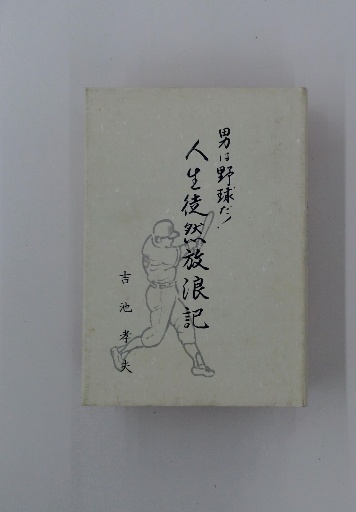 男は野球だ!
人生徒然放浪記
吉池孝夫